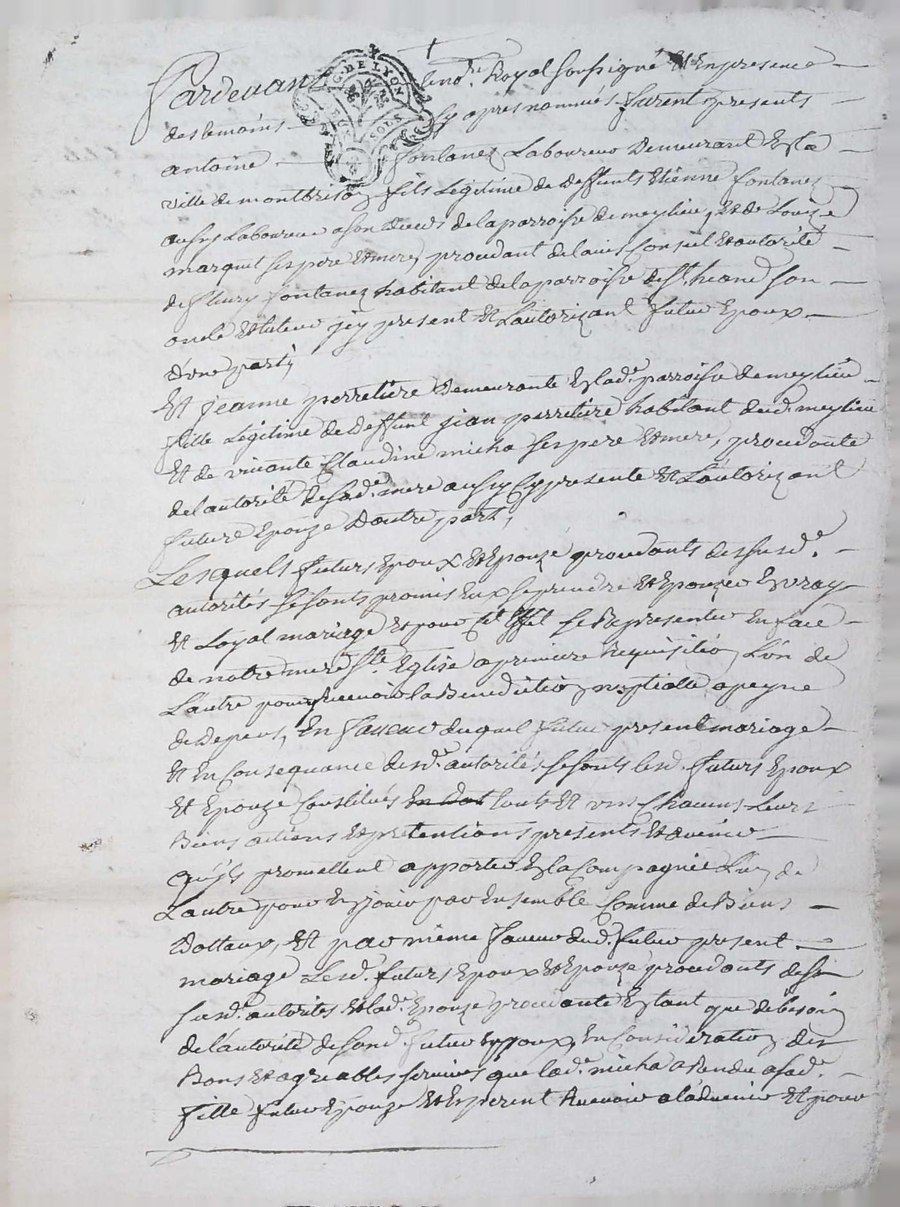 Pardevant le no.re Royal soussigné Et En presence
des temoins cy apres nommés furent presents
antoine fontanez Laboureur Demeurant En la
ville de montbrison, fils Legitime de Deffunts Etienne fontanez
aussy Laboureur a son deceds de la parroisse de meylieu, Et de Louize
marquet ses pere Et mere, procedant de lavis, Conseil Et autorité
de fleury fontanez habitant de la parroisse de St. heand son
oncle Et tuteur icy present Et Lautorizant futur Epoux
d'une part,
Et jeanne perretiere Demeurante En lad.e parroisse de meylieu
fille Legitime de Deffunt jean perretiere habitant dud. meylieu
Et de vivante Claudine micha ses pere Et mere, procedante
de l'autorité de sad.e mere aussy Cy presente Et Lautorizant
future Epouze D'autre part,
Lesquels futurs Epoux Et Epouze procedants des susd.es
autorités se sont promis Eux se prendre Et Epouzer En vray
Et Loyal mariage Et pour cet Effet se Representer En face
de notre mere Ste. Eglise a premiere Requisition L'un de
L'autre pour y Recevoir la Benediction nuptialle a peyne
de Depens, En faveur duquel futur present mariage
Et En Consequance desd. autorités se sont lesd. futurs Epoux
Et Epouze Constitués En dot touts Et uns Chacuns Leurs
Biens actions Et pretentions presents Et avenir
qu'ils promettent apporter En la Compagnie L'un de
L'autre pour En jouir par Ensemble Comme de Biens
Dottaux, Et par même faveur dud. futur present
mariage Lesd. futurs Epoux Et Epouze procedants des
susd. autorités Et lad. Epouze procedante En tant que de besoin
de l'autorité de sond. futur Epoux, En Consideration des
Bons Et agreables services que lad.e micha a Rendu a sad.e
fille future Epouze Et Esperent Recevoir a ladvenir Et pour
G. DE LYON